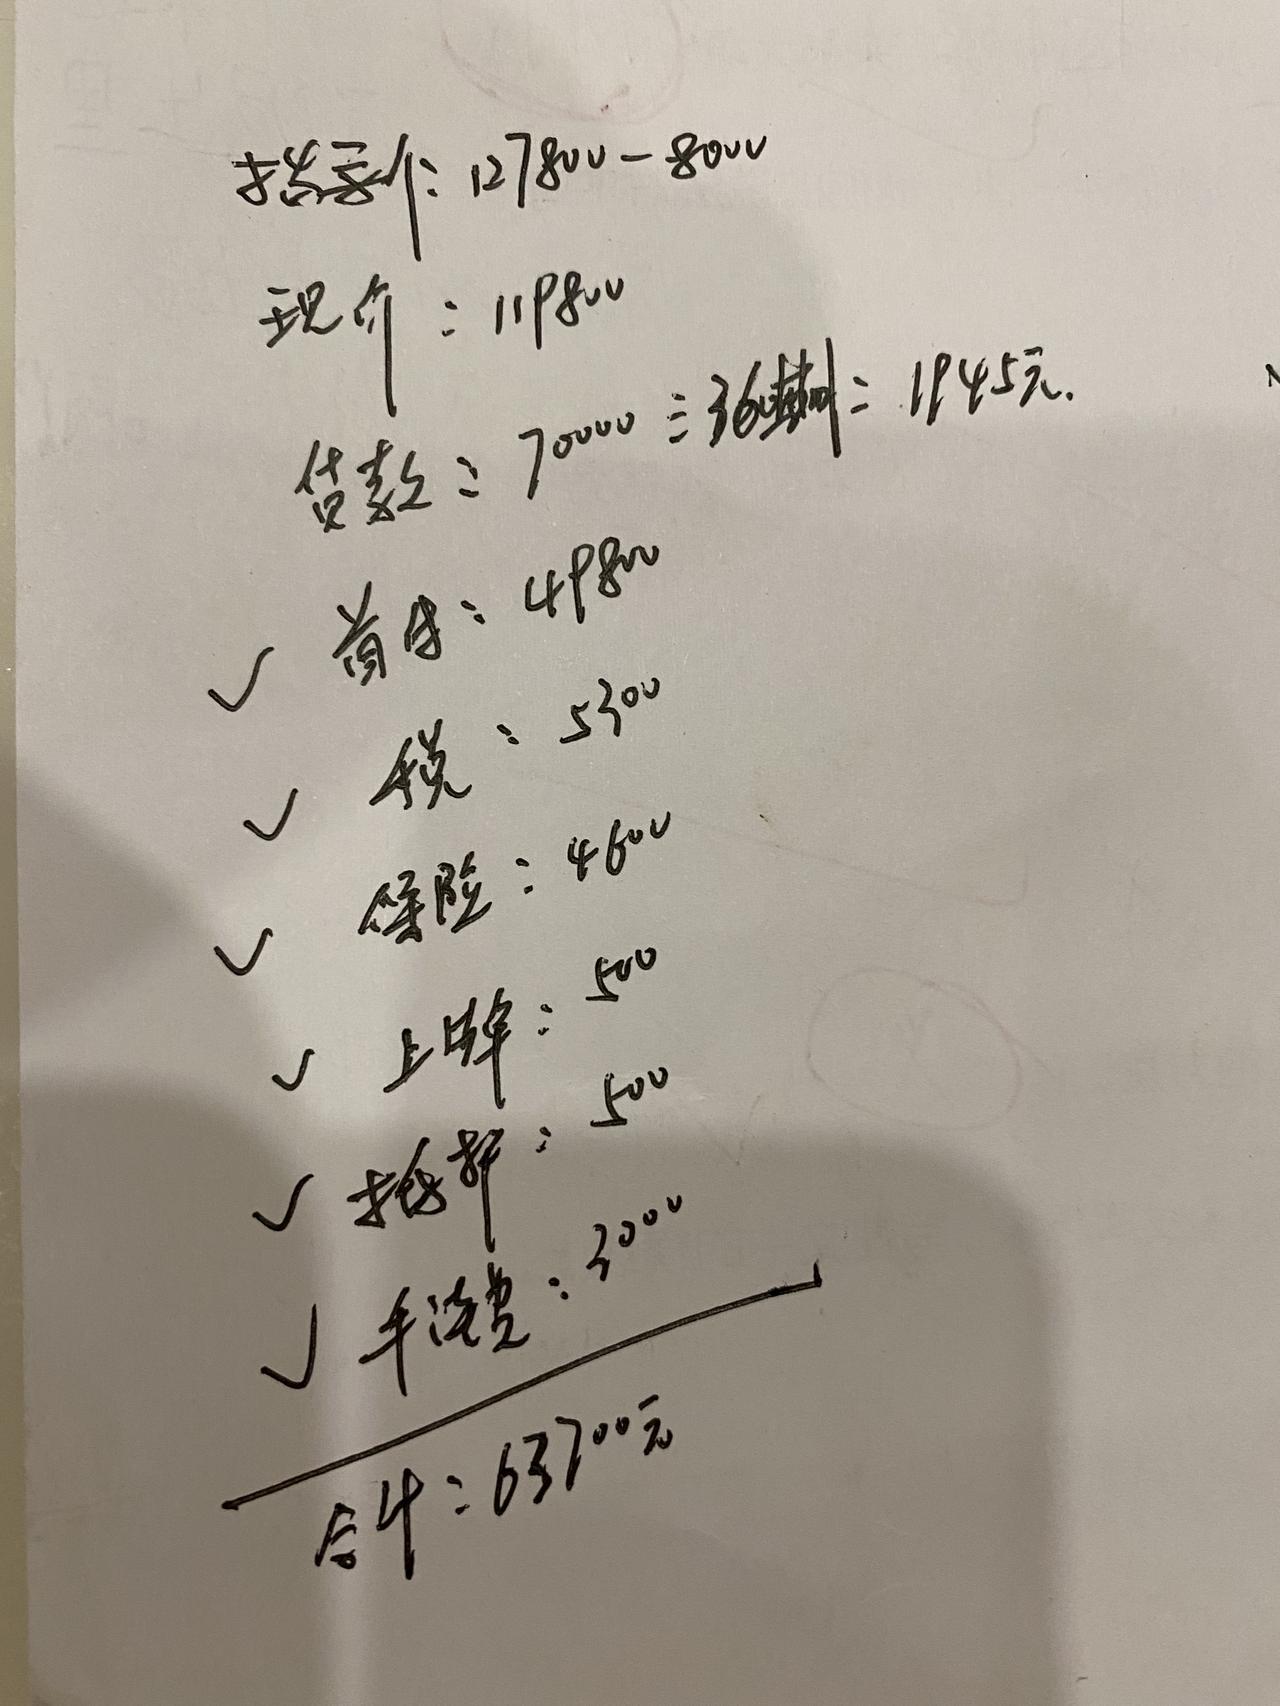 指导价：127800-8000
现价：119800
贷款：70000 = 36期 = 1945元.
✓ 首付：49800
✓ 税：5300
✓ 保险：4600
✓ 上牌：500
✓ 抵押：500
✓ 手续费：3000
合计：63700元